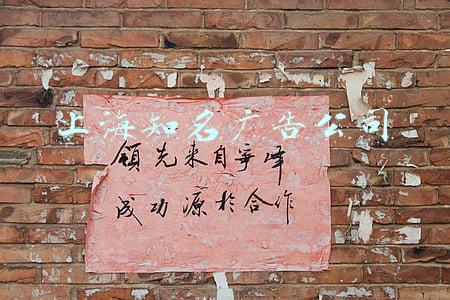 上海知名广告公司
领先来自争峰
成功源于合作